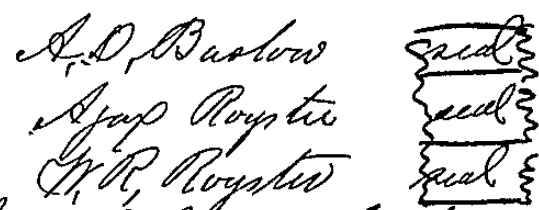 A. D. Barlow seal
Ajax Royster seal
W. R. Royster seal